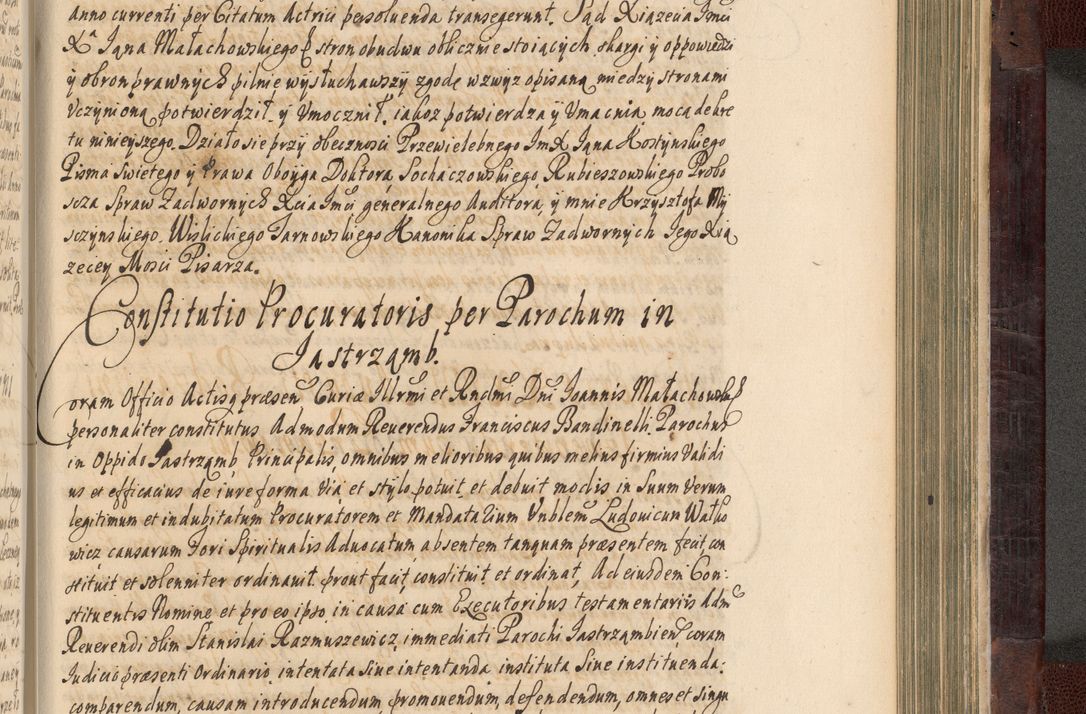 anno currenti per Citatum Actrici persoluenda transegerunt. Sąd Xiązecia Jmci
Xa Jana Małachowskiego stron obudwu oblicznie stoiących skargi y oppowiedzi
y obron prawnych pilnie wysłuchawszy zgodę wzwyz opisaną między stronami
Uczynioną potwierdził y Umocnił, iakoz potwierdza y Umacnia mocą dekre
tu ninieyszego. Działo się przy obecnosci Przewielebnego ImX Jana Kostynskiego
Pisma Swietego y Prawa Oboyga Doktora, Sochaczowskiego, Rubieszowskiego Probo
scza Spraw Zadwornych Xcia Jmci generalnego Auditora, y mnie Krzysztofa My
sczynskiego. Wislickiego Tarnowskiego Kanonika Spraw Zadwornych Jego Xią
zecey Mosci Pisarza.
Constitutio Procuratoris per Parochum in
Jastrzamb.
Coram Officio Actisq præsen Curiæ Illrmi et Rndmi Dni Joannis Małachowski
personaliter constitutus Admodum Reuerendus Franciscus Bandinelli Parochus
in Oppido Jastrzamb Principalis, omnibus melioribus quibus melius firmius Validi
us et efficacius de iure forma via et stylo potuit et debuit modis in Suum Verum
legitimum et indubitatum Procuratorem et Mandatarium Vnblem Ludouicum Watko
wicz causarum Fori Spiritualis Aduocatum absentem tanquam præsentem fecit, con
stituit et solenniter ordinauit prout facit, constituit et ordinat, Ad eiusdem Con:
stituentis Nomine et pro eo ipso in causa cum Executoribus testamentariis Adm
Reuerendi olim Stanislai Razmuszewicz, immediati Parochi Jastrzambien coram
Iudicio præsenti Ordinario intentata Siue intentanda instituta Siue instituenda:
comparendum, causam introducendum, promouendum, defendendum, omnes et singu